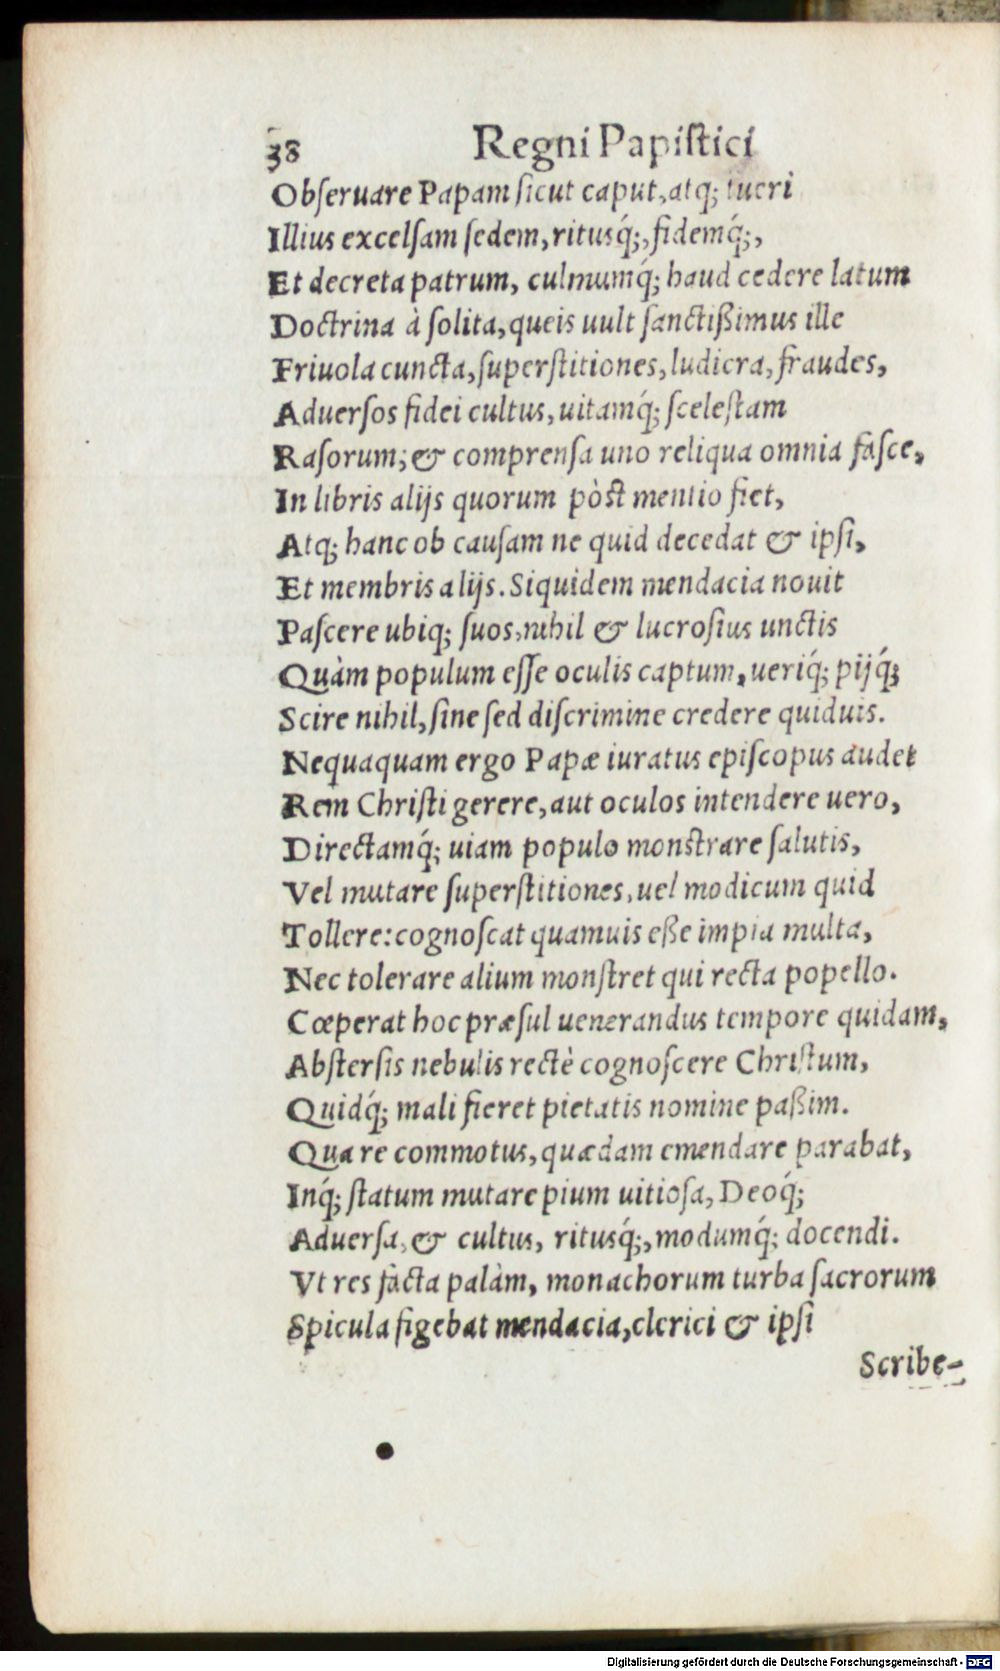 38 Regni Papiſtici
Obſeruare Papam ſicut caput, atq; tueri
Illius excelſam ſedem, ritusq́;, fidemq́;,
Et decreta patrum, culmumq́; haud cedere latum
Doctrina à ſolita, queis uult ſanctißimus ille
Friuola cuncta, ſuperſtitiones, ludicra, fraudes,
Aduerſos fidei cultus, uitamq́; ſceleſtam
Raſorum; & comprenſa uno reliqua omnia faſce,
In libris alijs quorum pòſt mentio fiet,
Atq; hanc ob cauſam ne quid decedat & ipſi,
Et membris alijs. Siquidem mendacia nouit
Paſcere ubiq; ſuos, nihil & lucroſius unctis
Quàm populum eſſe oculis captum, ueriq́; pijq́;
Scire nihil, ſine ſed diſcrimine credere quiduis.
Nequaquam ergo Papæ iuratus epiſcopus audet
Rem Chriſti gerere, aut oculos intendere uero,
Directamq́; uiam populo monſtrare ſalutis,
Vel mutare ſuperſtitiones, uel modicum quid
Tollere: cognoſcat quamuis eße impia multa,
Nec tolerare alium monſtret qui recta popello.
Cœperat hoc præſul uenerandus tempore quidam,
Abſterſis nebulis rectè cognoſcere Chriſtum,
Quidq́; mali fieret pietatis nomine paßim.
Qua re commotus, quædam emendare parabat,
Inq́; ſtatum mutare pium uitioſa, Deoq́;
Aduerſa, & cultus, ritusq́;, modumq́; docendi.
Vt res fàcta palàm, monachorum turba ſacrorum
Spicula figebat mendacia, clerici & ipſi
Scribe-
Digitalisierung gefördert durch die Deutsche Forschungsgemeinschaft - DFG